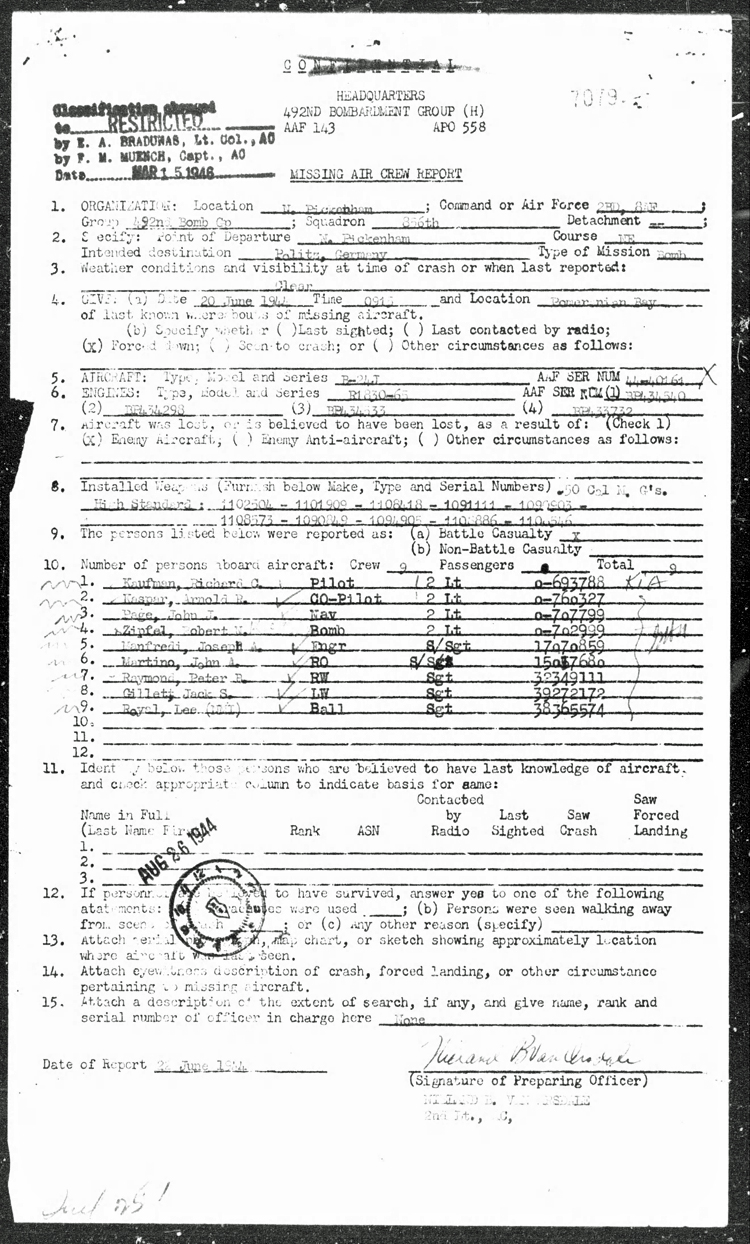 CONFIDENTIAL
HEADQUARTERS
492ND BOMBARDMENT GROUP (H)
AAF 143 APO 558
Classification changed
to RESTRICTED
by E. A. BRADUNAS, Lt. Col., AC
by F. M. MUENCH, Capt., AC
Date MAR 15 1946
MISSING AIR CREW REPORT
1. ORGANIZATION: Location N. Pickenham; Command or Air Force 2BD, 8AF;
Group 492nd Bomb Gp; Squadron 856th Detachment --;
2. Specify: Point of Departure N. Pickenham Course NE
Intended destination Politz, Germany Type of Mission Bomb
3. Weather conditions and visibility at time of crash or when last reported:
Clear
4. GIVE: (a) Date 20 June 1944 Time 0915 and Location Pomeranian Bay
of last known whereabouts of missing aircraft.
(b) Specify whether ( )Last sighted; ( ) Last contacted by radio;
(x) Forced down; ( ) Seen to crash; or ( ) Other circumstances as follows:
5. AIRCRAFT: Type, Model and Series B-24J AAF SER NUM 44-40161 X
6. ENGINES: Type, Model and Series R1830-65 AAF SER NUM (1)
(2) BP434298 (3) (4) BP433732
7. Aircraft was lost, or is believed to have been lost, as a result of: (Check 1)
(x) Enemy Aircraft; ( ) Enemy Anti-aircraft; ( ) Other circumstances as follows:
8. Installed Weapons (Furnish below Make, Type and Serial Numbers) .50 Cal M. G's.
High Standard : 1102504 - 1101909 - 1108418 - 1091111 -
1108573 -
9. The persons listed below were reported as: (a) Battle Casualty x
(b) Non-Battle Casualty
10. Number of persons aboard aircraft: Crew 9 Passengers Total 9
1. Kaufman, Richard C. Pilot 2 Lt 0-693788 KIA
2. Kasper, Arnold R. CO-Pilot 2 Lt 0-760327
3. Page, John J. Nav 2 Lt 0-707799
4. Zipfel, Robert Bomb 2 Lt 0-702999
5. Manfredi, Joseph A. Engr S/Sgt 17070859
6. Martino, John A. RO S/Sgt
7. Raymond, Peter R. RW Sgt 32349111
8. Gillett Jack S. LW Sgt 39272172
9. Royal, Lee (NMI) Ball Sgt 38365574
10.
11.
12.
11. Identify below those persons who are believed to have last knowledge of aircraft,
and check appropriate column to indicate basis for same:
Contacted Saw
Name in Full by Last Saw Forced
(Last Name First) Rank ASN Radio Sighted Crash Landing
1.
2.
3.
AUG 26 1944
12. If personnel are believed to have survived, answer yes to one of the following
statements: parachutes were used ; (b) Persons were seen walking away
from scene of crash ; or (c) Any other reason (specify)
13. Attach aerial photograph, map chart, or sketch showing approximately location
where aircraft was last seen.
14. Attach eyewitness description of crash, forced landing, or other circumstance
pertaining to missing aircraft.
15. Attach a description of the extent of search, if any, and give name, rank and
serial number of officer in charge here None
Date of Report June 1944
(Signature of Preparing Officer)
2nd Lt., AC,